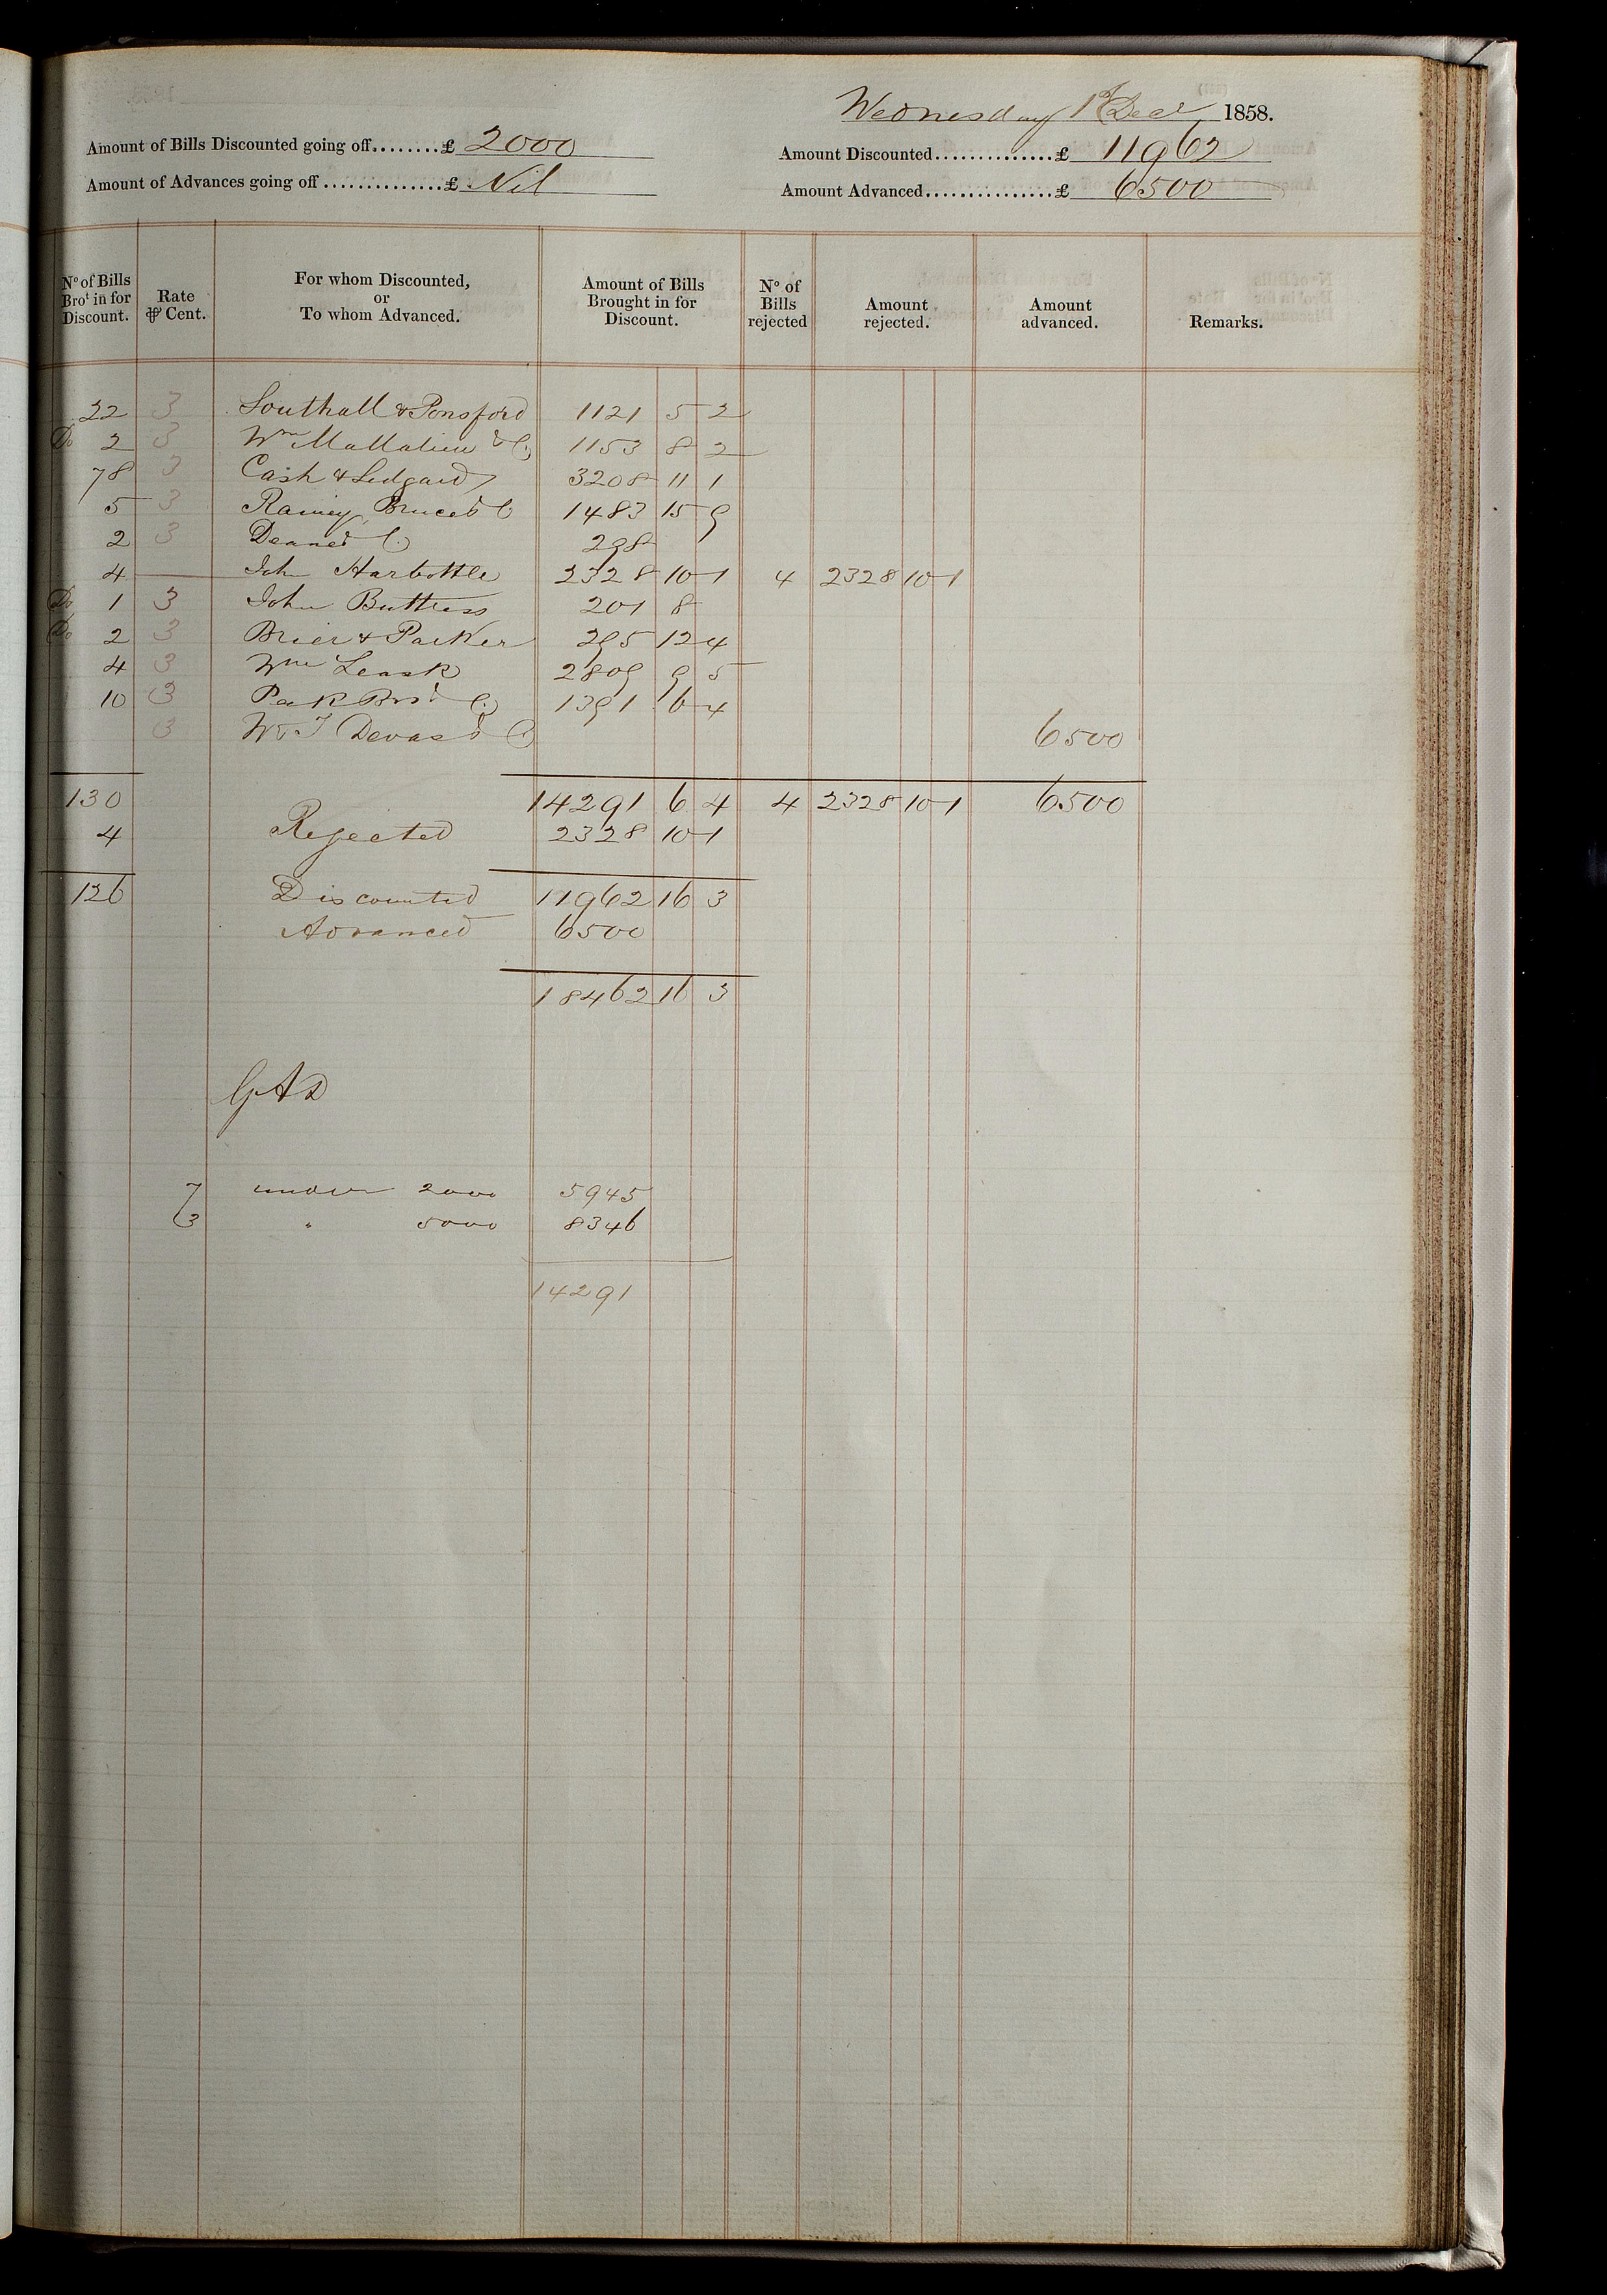 Wednesday 1st Decr 1858.
Amount of Bills Discounted going off........£ 2000
Amount Discounted...............£ 11962
Amount of Advances going off ...............£ Nil
Amount Advanced................£ 6500
No of Bills Brot in for Discount. Rate ⅌ Cent. For whom Discounted, or To whom Advanced. Amount of Bills Brought in for Discount. No of Bills rejected Amount rejected. Amount advanced. Remarks.
22 3 Southall & Ponsford 1121 5 2
Do 2 3 Wm Mallalieu & Co 1153 8 2
78 3 Cash & Ledgard 3208 11 1
5 3 Rainey Bruce & Co 1483 15 9
2 3 Deane & Co 298
4 — John Harbottle 2328 10 1 4 2328 10 1
Do 1 3 John Buttress 201 8
Do 2 3 Brier & Parker 295 12 4
4 3 Wm Leask 2809 9 5
10 3 Peek Bros & Co 1391 6 4
3 W & T Devas & Co 6500
130 14291 6 4 4 2328 10 1 6500
4 Rejected 2328 10 1
126 Discounted 11962 16 3
Advanced 6500
18462 16 3
7 under 2000 5945
3 " 5000 8346
14291